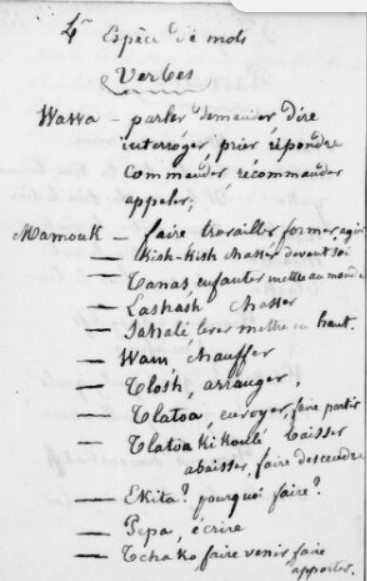 4ᵐ Espèce de mots
Verbes
Wawa – parler demander dire
interroger prier répondre
commander recommander
appeler;
Mamouk – faire travailler former agir
— Kish-Kish chasser devant soi
— Tanas enfanter mettre au monde
— Lashash chasser
— Sahalé lever mettre en haut.
— Wam chauffer
— Tlosh, arranger,
— Tlatoa, envoyer, faire partir
— Tlatoa Kikoulé baisser
abaisser, faire descendre
— Ekita? pourquoi faire?
— Pepa, écrire
— Tchako, faire venir faire
apporter.